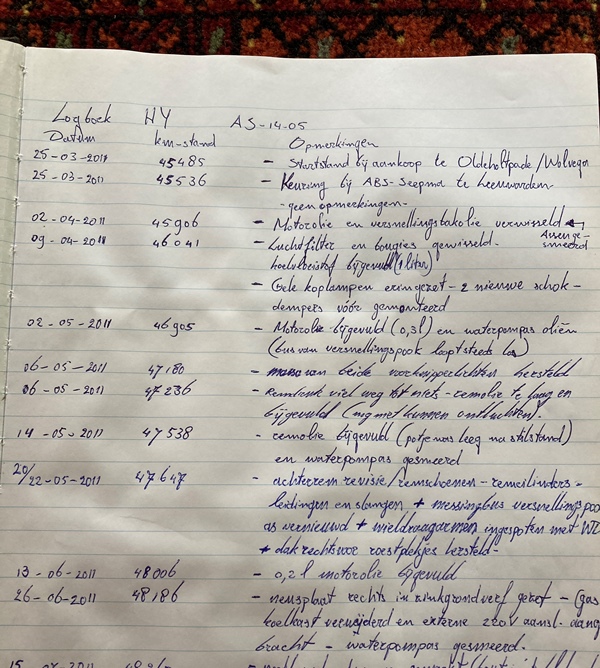 Logboek HY AS-14-05
Datum km-stand Opmerkingen
25-03-2011 45485 - Startstand bij aankoop te Oldeholtpade/Wolvega
25-03-2011 45536 - Keuring bij ABS-Seepma te Leeuwarden-
-geen opmerkingen-
02-04-2011 45906 - Motorolie en versnellingsbakolie verwisseld
09-04-2011 46041 - Luchtfilter en bougies gewisseld. Assen ge-smeerd
koelvloeistof bijgevuld (1 liter)
- Gele koplampen erin gezet - 2 nieuwe schok-
dempers vóór gemonteerd
02-05-2011 46905 - Motorolie bijgevuld (0,3l) en waterpomp as oliën
(bus van versnellingspook loopt steeds los)
06-05-2011 47180 - massa van beide voorknipperlichten hersteld
06-05-2011 47236 - Remdruk viel weg tot niets - remolie te laag en
bijgevuld (nog met kunnen ontluchten).
14-05-2011 47538 - remolie bijgevuld (potje was leeg na stilstand)
en waterpomp as gesmeerd
20/22-05-2011 47647 - achterrem revisie/remschoenen-remcilinders-
leidingen en slangen, + messingbus versnellingspoo
as vernieuwd + wieldraagarmen ingespoten met
+ dak rechtsvoor roestplekjes hersteld-
13-06-2011 48006 - 0,2 l motorolie bijgevuld
26-06-2011 48186 - neusplaat rechts in zinkgrondverf gezet - (gas
koelkast verwijderd en externe 220V aansl. aang
bracht - waterpomp as gesmeerd.